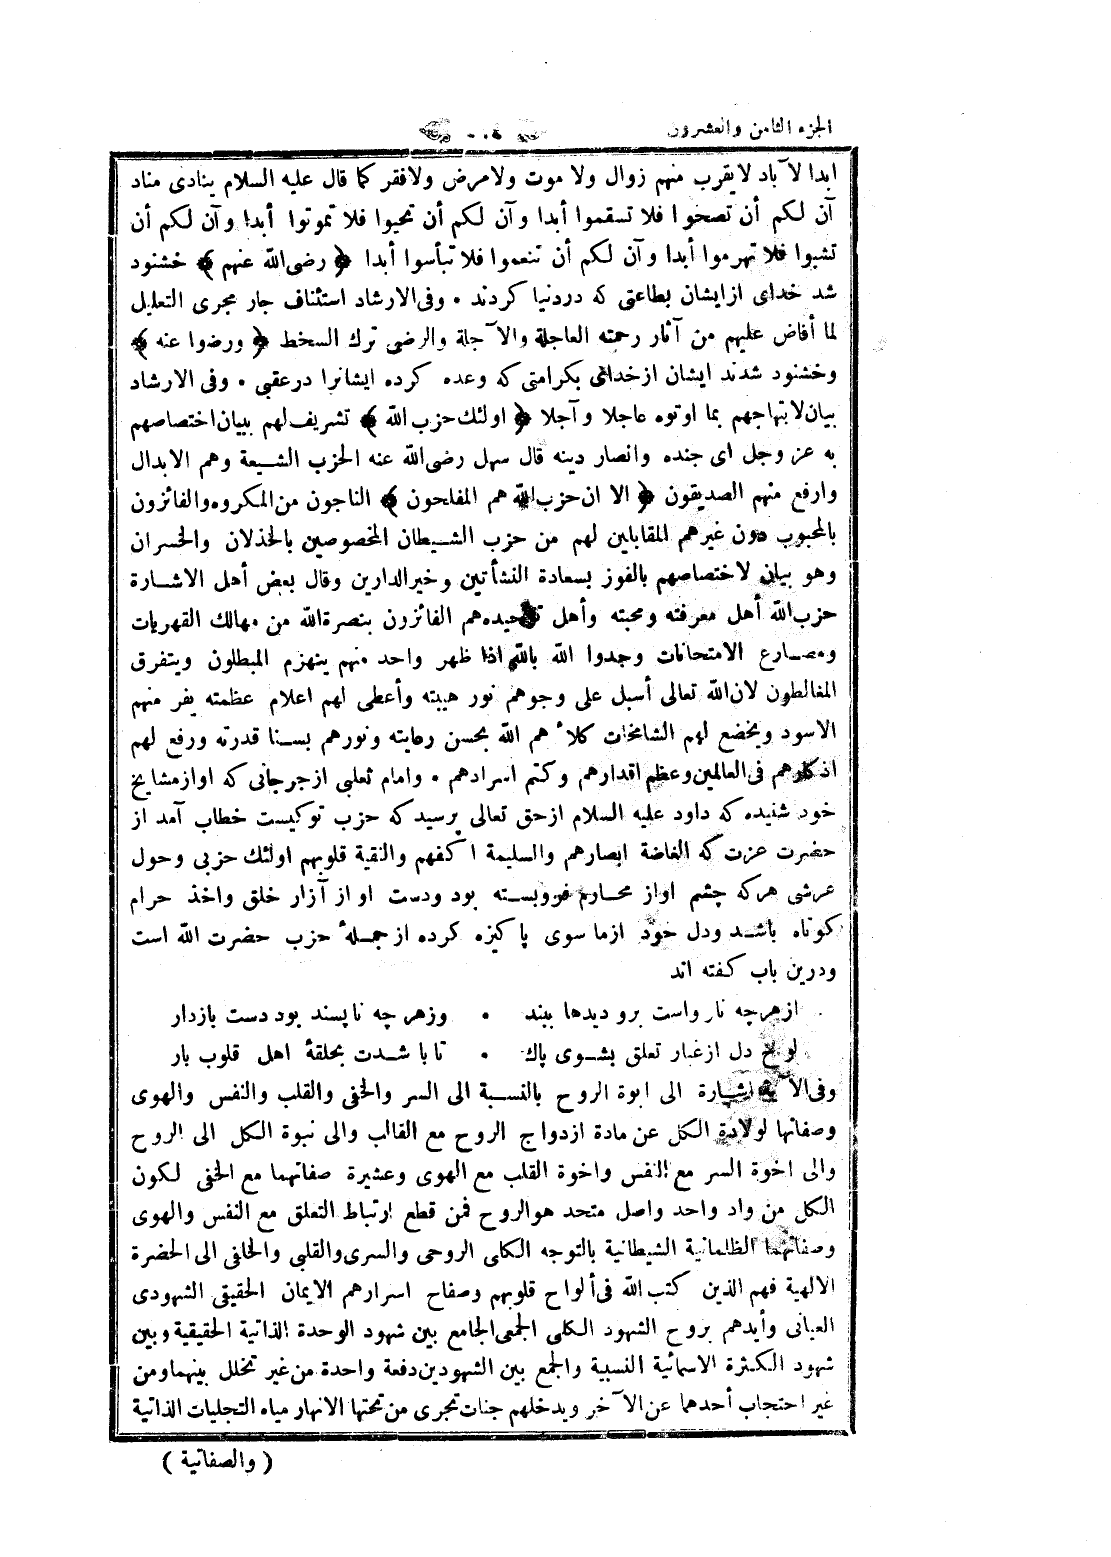 الجزء الثامن والعشرون
ابدا لآباد لايقرب منهم زوال ولا موت ولامرض ولافقر كما قال عليه السلام ينادى مناد
آن لكم أن تصحوا فلا تسقموا أبدا وآن لكم أن تحيوا فلا تموتوا أبدا وآن لكم أن
تشبوا فلا تهرموا أبدا وآن لكم أن تنعموا فلا تبأسوا أبدا ﴿ رضى الله عنهم ﴾ خشنود
شد خداى ازايشان بطاعتى كه دردنيا كردند • وفى الارشاد استئناف جار مجرى التعليل
لما أفاض عليهم من آثار رحمته العاجلة والآجلة والرضى ترك السخط ﴿ ورضوا عنه ﴾
وخشنود شدند ايشان ازخداى بكرامتى كه وعده كرده ايشانرا درعقبى • وفى الارشاد
بيان لابتهاجهم بما اوتوه عاجلا وآجلا ﴿ اولئك حزب الله ﴾ تشريف لهم ببيان اختصاصهم
به عز وجل اى جنده وانصار دينه قال سهل رضى الله عنه الحزب الشيعة وهم الابدال
وارفع منهم الصديقون ﴿ الا ان حزب الله هم المفلحون ﴾ الناجون من المكروه والفائزون
بالمحبوب دون غيرهم المقابلين لهم من حزب الشيطان المخصوصين بالخذلان والخسران
وهو بيان لاختصاصهم بالفوز بسعادة النشأتين وخير الدارين وقال بعض أهل الاشارة
حزب الله أهل معرفته ومحبته وأهل توحيده هم الفائزون بنصرة الله من مهالك القهريات
ومصارع الامتحانات وجدوا الله بالله اذا ظهر واحد منهم ينهزم المبطلون ويتفرق
المغالطون لان الله تعالى أسبل على وجوهم نور هيبته وأعطى لهم اعلام عظمته يفر منهم
الاسود ويخضع لهم الشامخات كلأ هم الله بحسن رعايته ونورهم بسنا قدرته ورفع لهم
اذكارهم فى العالمين وعظم اقدارهم وكتم اسرارهم • وامام ثعلبى ازجرجانى كه اوازمشايخ
خود شنيده كه داود عليه السلام ازحق تعالى پرسيد كه حزب توكيست خطاب آمد از
حضرت عزت كه الغاضة ابصارهم والسليمة اكفهم والنقية قلوبهم اولئك حزبى وحول
عرشى هركه چشم اواز محارم فروبسته بود ودست او از آزار خلق واخذ حرام
كوتاه باشد ودل خود ازما سوى پاكيزه كرده ازجملۀ حزب حضرت الله است
ودرين باب كفته اند
ازهرچه نارواست برو ديدها ببند • وزهرچه ناپسند بود دست بازدار
لوح دل ازغبار تعلق بشوى پاك • تابا شدت بحلقۀ اهل قلوب بار
وفى الآية اشارة الى ابوة الروح بالنسبة الى السر والخفى والقلب والنفس والهوى
وصفاتها لولادة الكل عن مادة ازدواج الروح مع القالب والى نبوة الكل الى الروح
والى اخوة السر مع النفس واخوة القلب مع الهوى وعشيرة صفاتهما مع الخفى لكون
الكل من واد واحد واصل متحد هو الروح فمن قطع ارتباط التعلق مع النفس والهوى
وصفاتهما الظلمانية الشيطانية بالتوجه الكلى الروحى والسرى والقلبى والخافى الى الحضرة
الالهية فهم الذين كتب الله فى ألواح قلوبهم وصفاح اسرارهم الايمان الحقيقى الشهودى
العيانى وأيدهم بروح الشهود الكلى الجمعى الجامع بين شهود الوحدة الذاتية الحقيقية وبين
شهود الكثرة الاسمائية النسبية والجمع بين الشهودين دفعة واحدة من غير تخلل بينهما ومن
غير احتجاب أحدهما عن الآخر ويدخلهم جنات تجرى من تحتها الانهار مياه التجليات الذاتية
( والصفاتية )